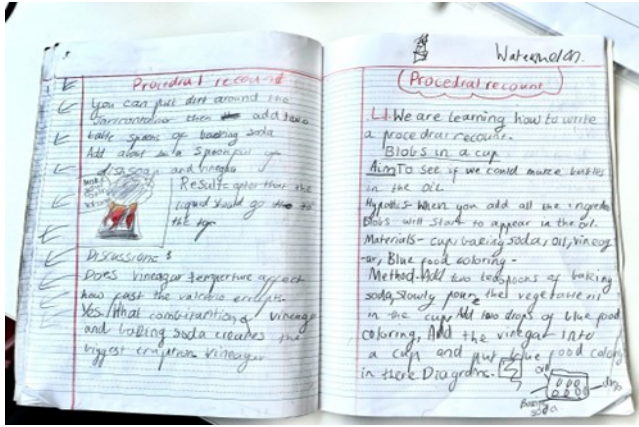 Procedral recount
You can put dirt around the
then add two
table spoons of baking soda
Add about
and vinegar
Results after that the
liquid should go to
the top
Discussions
Does vineagar temperture affect
how fast the valcano errupts.
Yes/What combination of vineage
and baking soda creates the
biggest eruption Vineagar
Watermelon.
Procedral recount
LI We are learning how to write
a procedral recount.
Blobs in a cup
Aim To see if we could make bubbles
in the oil.
When you add all the ingrede
Blobs will start to appear in the oil.
Materials - cup, baking soda, oil, vineag
-ar, Blue food coloring -
Method - Add two teaspoons of baking
soda, slowly pour the vegetable oil
in the cup Add two drops of blue food
coloring, Add the vinegar into
a cup and put blue food coloring
in there Diagrams.
oil
Baking
soda